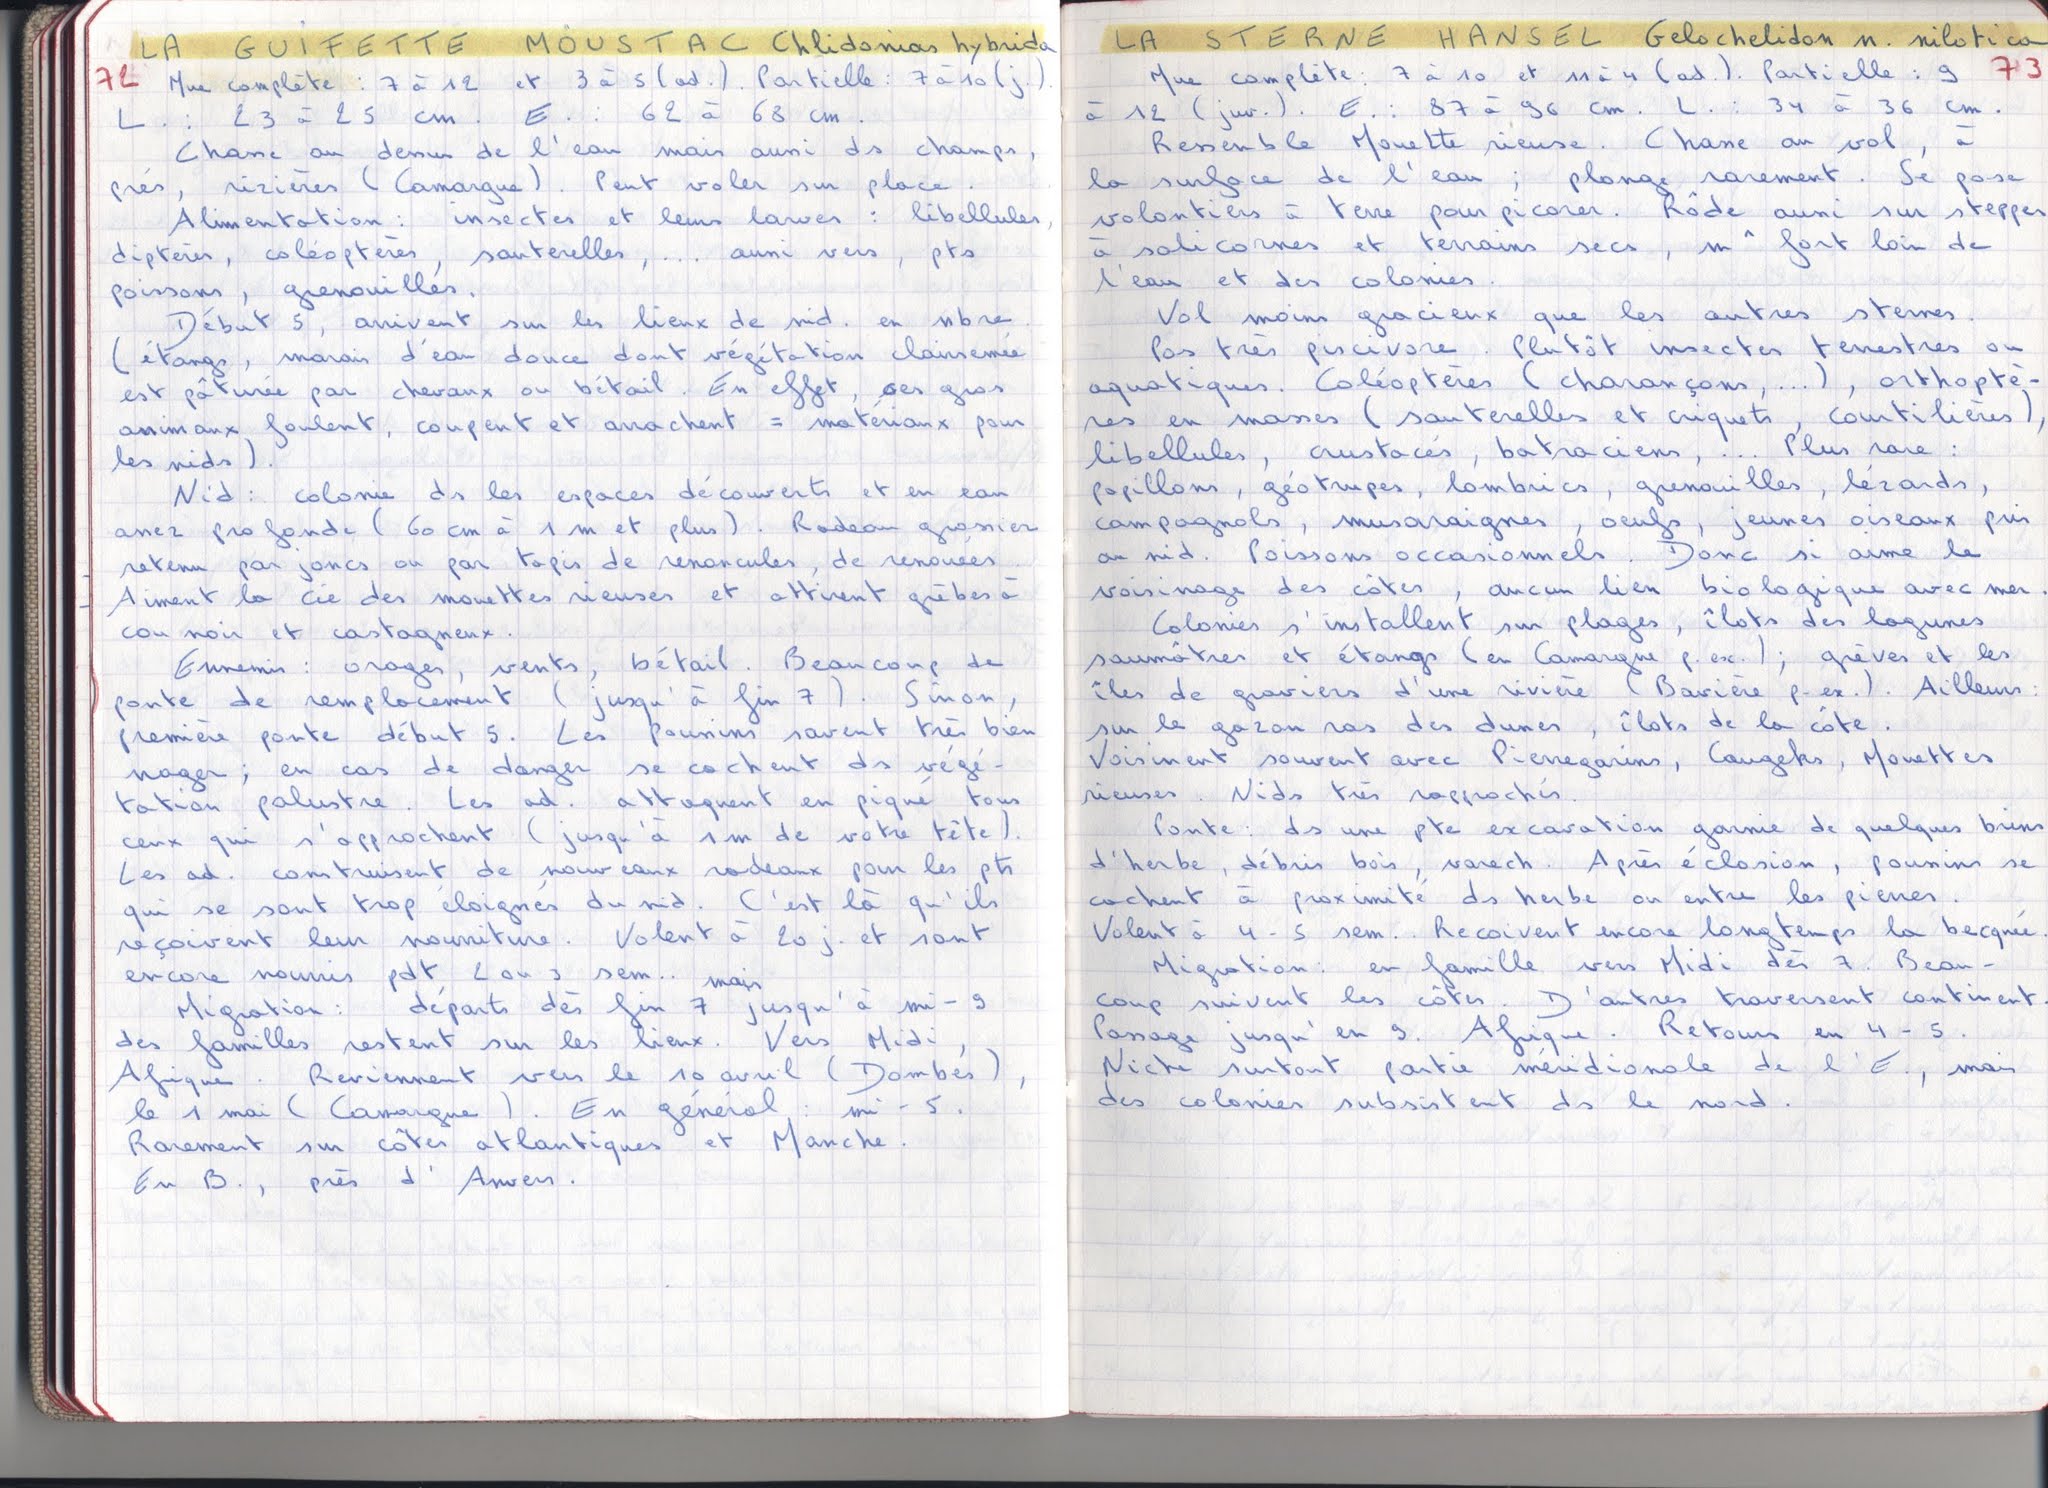 LA GUIFETTE MOUSTAC Chlidonias hybrida
72 Mue complète : 7 à 12 et 3 à 5 (ad.). Partielle : 7 à 10 (j.).
L. : 23 à 25 cm. E. : 62 à 68 cm.
Chasse au dessus de l'eau mais aussi ds champs,
prés, rizières (Camargue). Peut voler sur place.
Alimentation : insectes et leurs larves : libellules,
diptères, coléoptères, sauterelles, ... aussi vers, pts
poissons, grenouilles.
Début 5, arrivent sur les lieux de nid. en nbre
(étangs, marais d'eau douce dont végétation clairsemée
est pâturée par chevaux ou bétail. En effet, ces gros
animaux foulent, coupent et arrachent = matériaux pour
les nids).
Nid : colonie ds les espaces découverts et en eau
assez profonde (60 cm à 1 m et plus). Radeau grossier
retenu par joncs ou par tapis de renoncules, de renouées.
Aiment la cie des mouettes rieuses et attirent grèbes à
cou noir et castagneux.
Ennemis : orages, vents, bétail. Beaucoup de
ponte de remplacement (jusqu'à fin 7). Sinon,
première ponte début 5. Les poussins savent très bien
nager ; en cas de danger se cachent ds végé-
tation palustre. Les ad. attaquent en piqué tous
ceux qui s'approchent (jusqu'à 1m de votre tête).
Les ad. construisent de nouveaux radeaux pour les pts
qui se sont trop éloignés du nid. C'est là qu'ils
reçoivent leur nourriture. Volent à 20 j. et sont
encore nourris pdt 2 ou 3 sem..
Migration : départs dès fin 7 mais jusqu'à mi-9
des familles restent sur les lieux. Vers Midi,
Afrique. Reviennent vers le 10 avril (Dombes),
le 1 mai (Camargue). En général : mi-5.
Rarement sur côtes atlantiques et Manche.
En B., près d'Anvers.
LA STERNE HANSEL Gelochelidon n. nilotica
Mue complète : 7 à 10 et 11 à 4 (ad.). Partielle : 9 73
à 12 (juv.). E. : 87 à 96 cm. L. : 34 à 36 cm.
Ressemble Mouette rieuse. Chasse au vol, à
la surface de l'eau ; plonge rarement. Se pose
volontiers à terre pour picorer. Rôde aussi sur steppes
à salicornes et terrains secs, m^ fort loin de
l'eau et des colonies.
Vol moins gracieux que les autres sternes.
Pas très piscivore. Plutôt insectes terrestres ou
aquatiques. Coléoptères (charançons, ...), orthoptè-
res en masses (sauterelles et criquets, courtilières),
libellules, crustacés, batraciens, ... Plus rare :
papillons, géotrupes, lombrics, grenouilles, lézards,
campagnols, musaraignes, oeufs, jeunes oiseaux pris
au nid. Poissons occasionnels. Donc si aime le
voisinage des côtes, aucun lien biologique avec mer.
Colonies s'installent sur plages, îlots des lagunes
saumâtres et étangs (en Camargue p. ex.) ; grèves et les
îles de graviers d'une rivière (Bavière p. ex.). Ailleurs :
sur le gazon ras des dunes, îlots de la côte.
Voisinent souvent avec Pierregarins, Caugeks, Mouettes
rieuses. Nids très rapprochés.
Ponte : ds une pte excavation garnie de quelques brins
d'herbe, débris bois, varech. Après éclosion, poussins se
cachent à proximité ds herbe ou entre les pierres.
Volent à 4-5 sem.. Recoivent encore longtemps la becquée.
Migration : en famille vers Midi dès 7. Beau-
coup suivent les côtes. D'autres traversent continent.
Passage jusqu'en 9. Afrique. Retours en 4-5.
Niche surtout partie méridionale de l'E., mais
des colonies subsistent ds le nord.